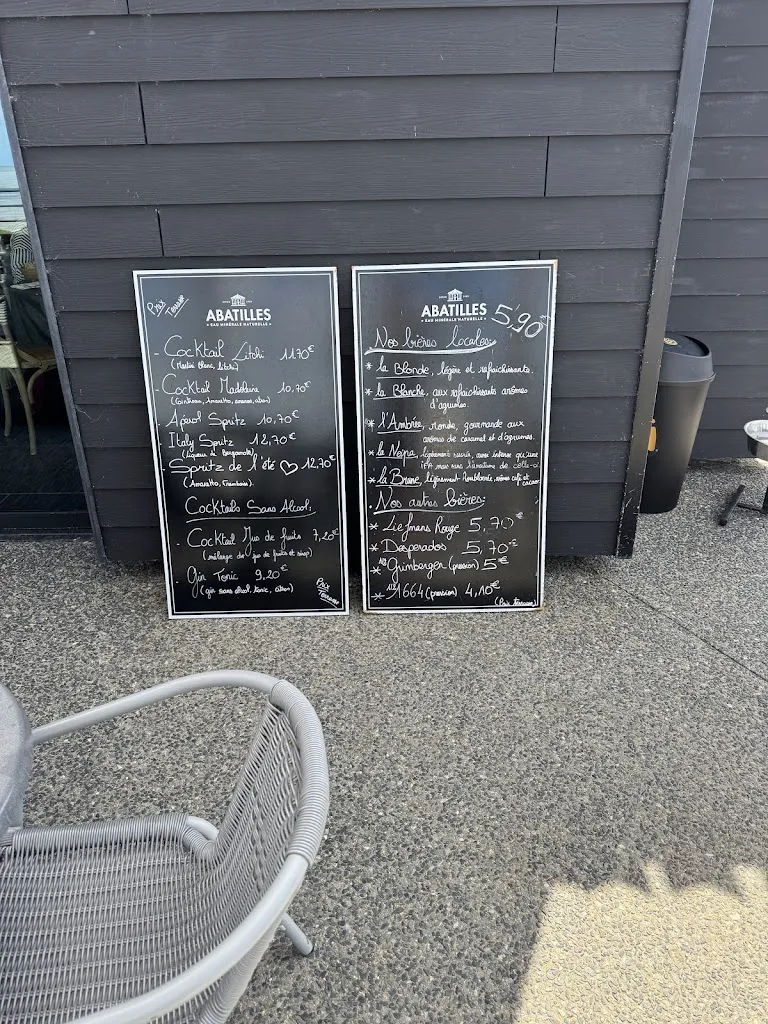 Prix
Terrasse
ABATILLES
EAU MINÉRALE NATURELLE
- Cocktail Litchi 11.70€
(Martini Blanc, litchi)
- Cocktail Madeleine 10,70€
(Cointreau, Amaretto, ananas, citron)
- Apérol Spritz 10,70€
- Italy Spritz 12,70€
(Liqueur de Bergamote)
- Spritz de l'été ♡ 12,70€
(Amaretto, Framboise)
Cocktails Sans Alcool:
- Cocktail Jus de fruits 7,20€
(mélange de jus de fruits et sirop)
- Gin Tonic 9,20€
(gin sans alcool, tonic, citron)
Prix
Terrasse
ABATILLES
EAU MINÉRALE NATURELLE
5,90€
Nos bières locales:
* la Blonde, légère et rafraichissante.
* la Blanche, aux rafraichissants arômes
d'agrumes.
* l'Ambrée, ronde, gourmande aux
arômes de caramel et d'agrumes.
* la Neipa, légèrement sucrée, aussi intense qu'une
IPA mais sans l'amertume de celle-ci
* la Brune, légèrement houblonnée, arômes café et cacao
. Nos autres bières:
* Liefmans Rouge 5,70€
* Desperados 5,70€
* Grimbergen (pression) 5€
* 1664 (pression) 4,10€
(Prix terrasse)